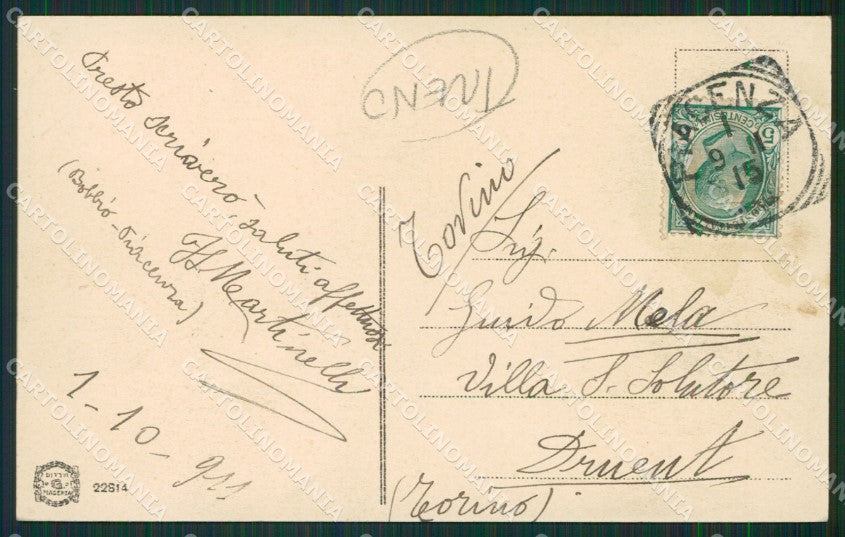 Presto scriverò, saluti affettuosi
H. Martinelli
(Bobbio - Piacenza)
1-10-911
22514
Torino
Sig.
Guido Mela
Villa S. Solutore
Druent
(Torino)
PIACENZA
9 15
CENTESIMI
5
CARTOLINOMANIA